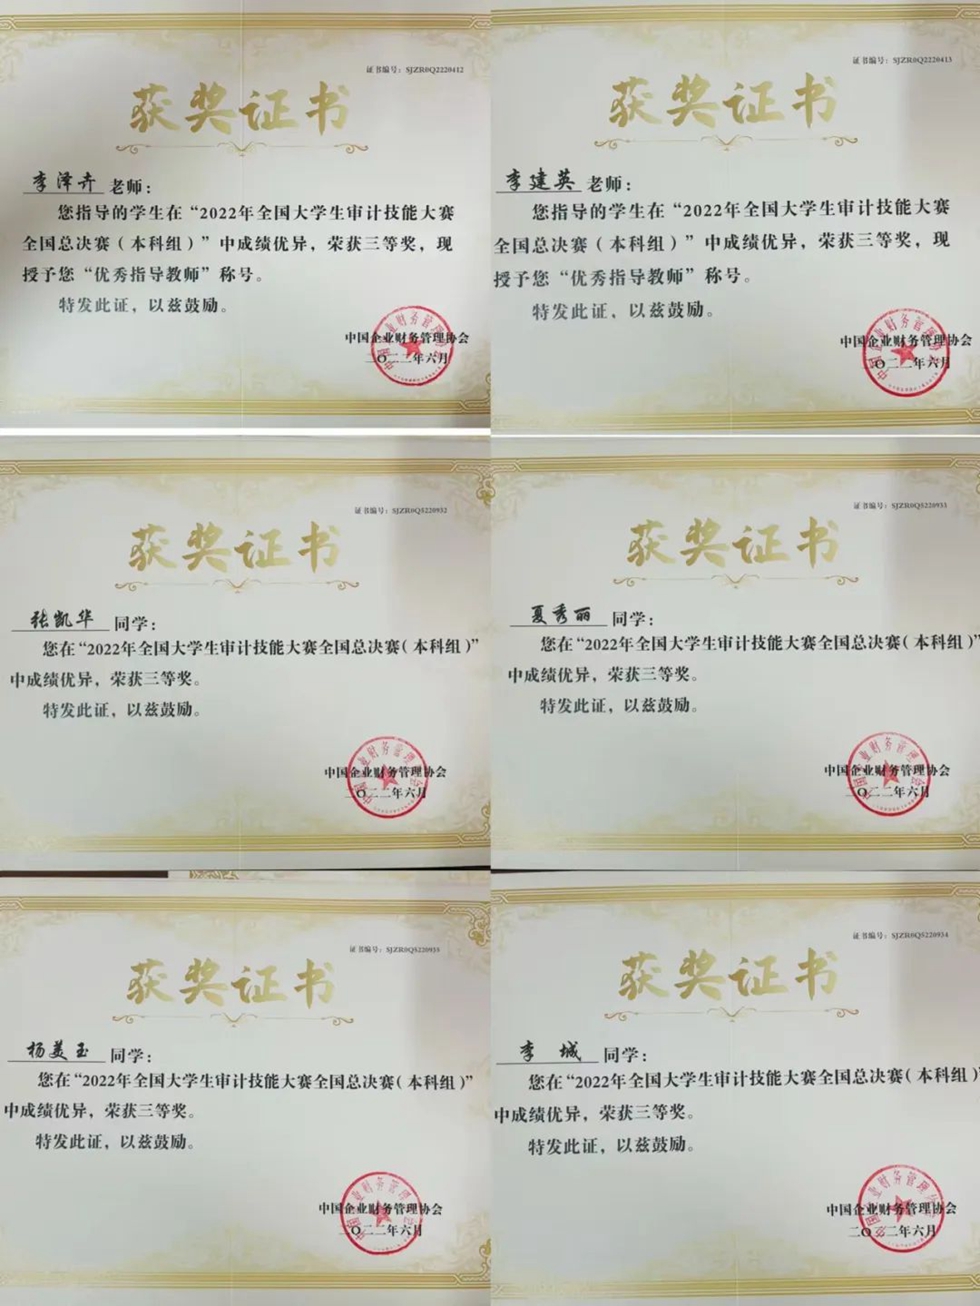 证书编号：SJZR0Q2220412
获奖证书
李泽卉 老师：
您指导的学生在“2022年全国大学生审计技能大赛
全国总决赛（本科组）”中成绩优异，荣获三等奖，现
授予您“优秀指导教师”称号。
特发此证，以兹鼓励。
中国企业财务管理协会
二〇二二年六月
证书编号：SJZR0Q2220413
获奖证书
李建英 老师：
您指导的学生在“2022年全国大学生审计技能大赛
全国总决赛（本科组）”中成绩优异，荣获三等奖，现
授予您“优秀指导教师”称号。
特发此证，以兹鼓励。
中国企业财务管理协会
二〇二二年六月
证书编号：SJZR0QS220932
获奖证书
张凯华 同学：
您在“2022年全国大学生审计技能大赛全国总决赛（本科组）”
中成绩优异，荣获三等奖。
特发此证，以兹鼓励。
中国企业财务管理协会
二〇二二年六月
证书编号：SJZR0QS220933
获奖证书
夏秀丽 同学：
您在“2022年全国大学生审计技能大赛全国总决赛（本科组）”
中成绩优异，荣获三等奖。
特发此证，以兹鼓励。
中国企业财务管理协会
二〇二二年六月
证书编号：SJZR0QS220935
获奖证书
杨美玉 同学：
您在“2022年全国大学生审计技能大赛全国总决赛（本科组）”
中成绩优异，荣获三等奖。
特发此证，以兹鼓励。
中国企业财务管理协会
二〇二二年六月
证书编号：SJZR0QS220934
获奖证书
李 城 同学：
您在“2022年全国大学生审计技能大赛全国总决赛（本科组）”
中成绩优异，荣获三等奖。
特发此证，以兹鼓励。
中国企业财务管理协会
二〇二二年六月